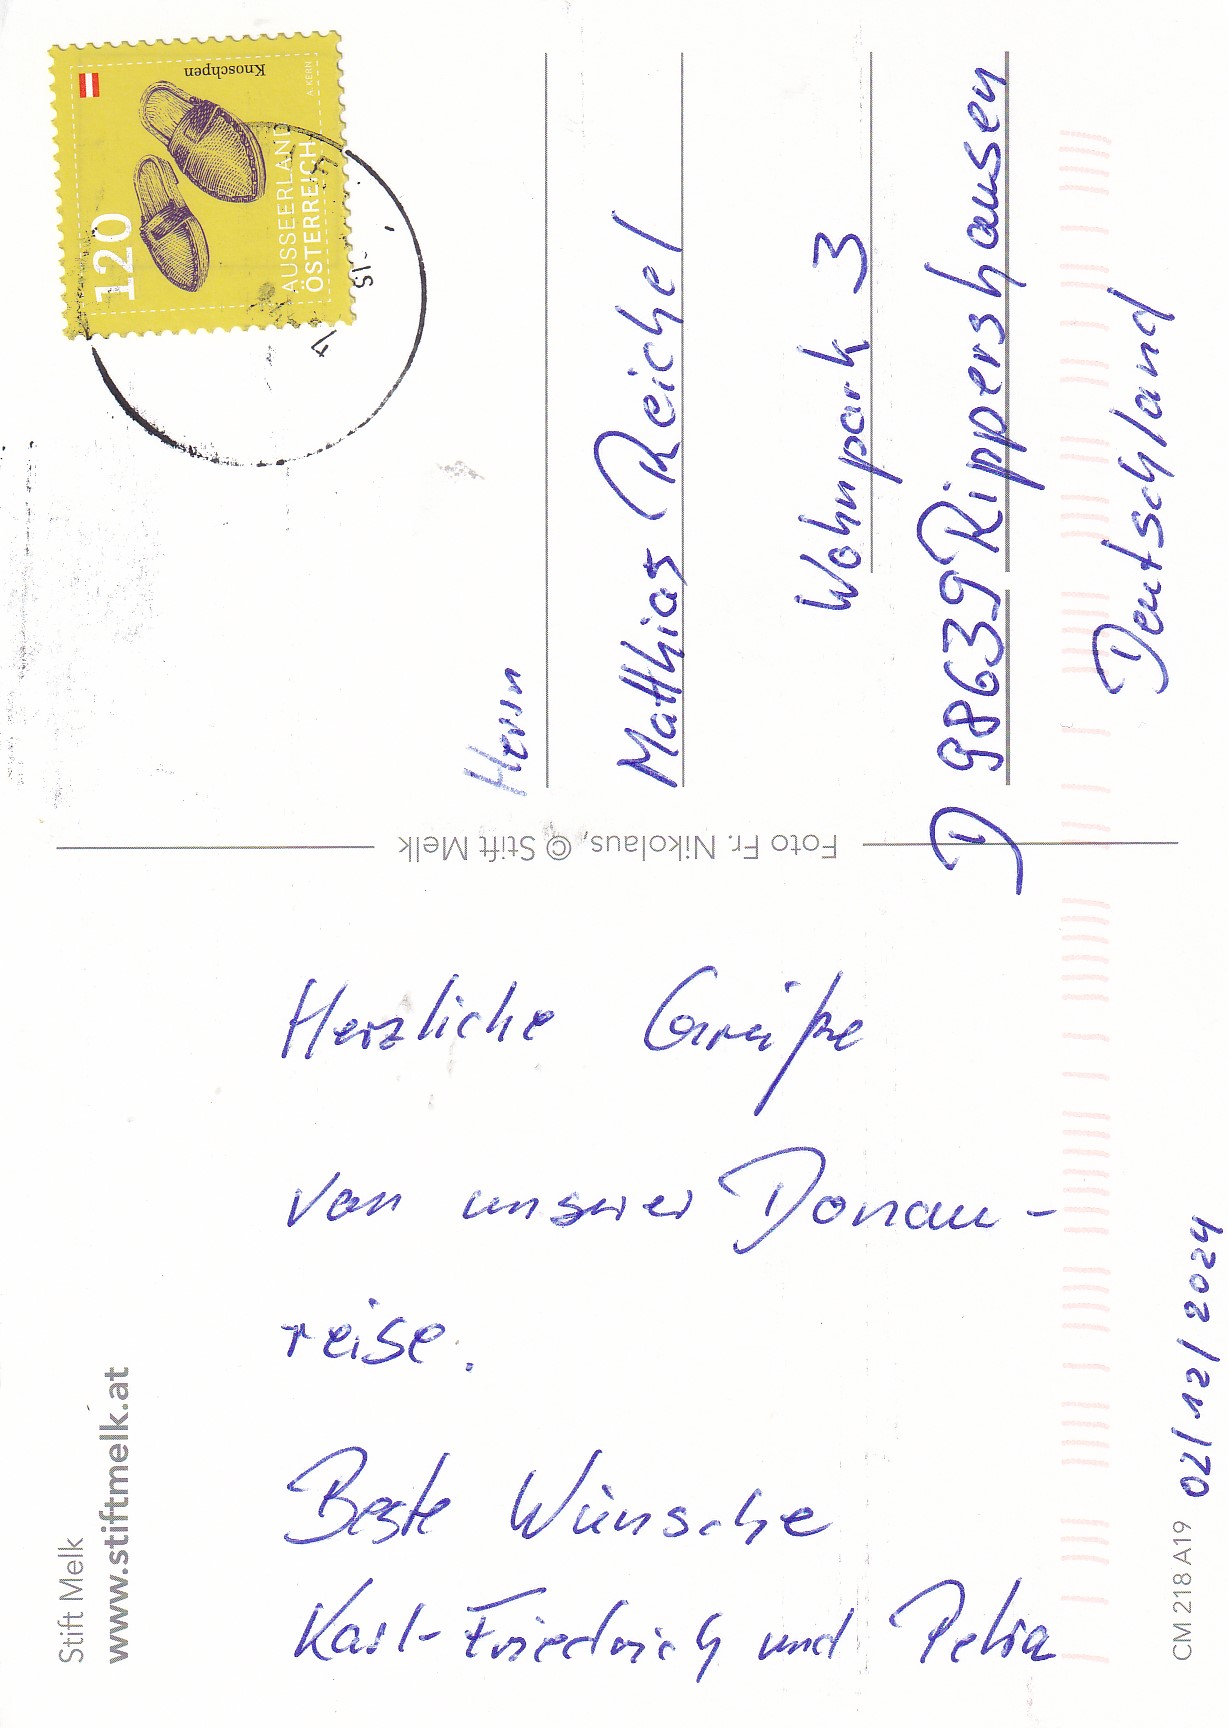 Stift Melk
www.stiftmelk.at
Herzliche Grüße
von unserer Donau-
reise.
Beste Wünsche
Karl-Friedrich und Petra
CM 218 A19
02/12/2024
Foto Fr. Nikolaus, © Stift Melk
120
AUSSEERLAND
ÖSTERREICH
Knoschpen
A. KERN
Herrn
Matthias Reichel
Wohnpark 3
D 98639 Rippershausen
Deutschland